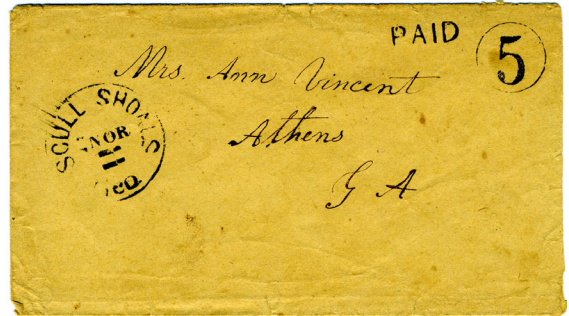 PAID
5
Mrs. Ann Vincent
Athens
G A
SCULL SHOALS
11